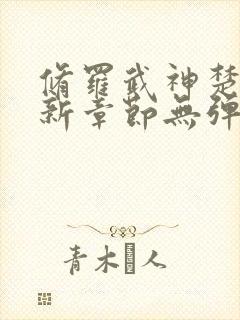 脩羅武神楚
新章節無彈
青木人